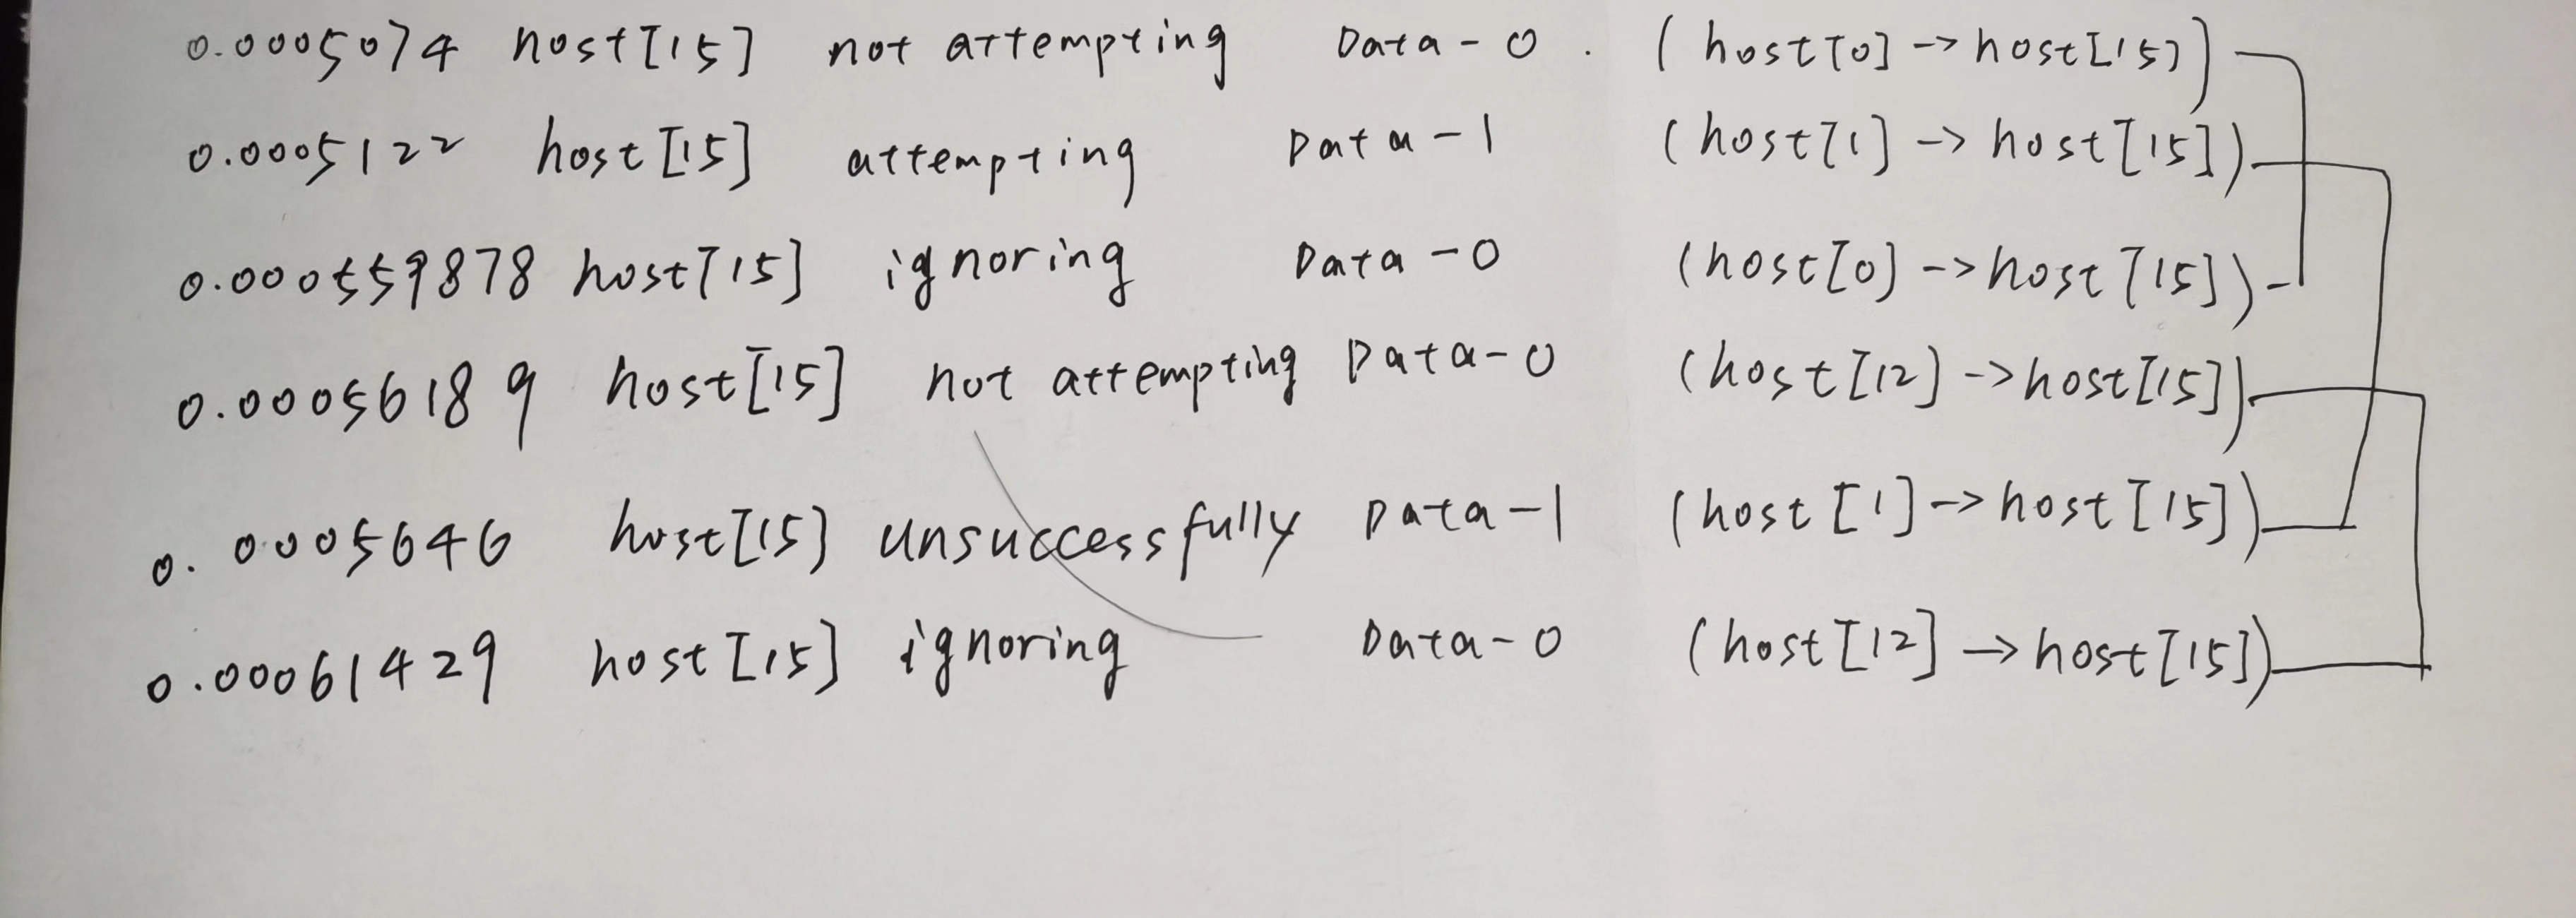 0.0005074 host[15] not attempting Data-0. (host[0]->host[15])
0.0005122 host[15] attempting Data-1 (host[1]->host[15])
0.000559878 host[15] ignoring Data-0 (host[0]->host[15])
0.00056189 host[15] not attempting Data-0 (host[12]->host[15])
0.0005646 host[15] unsuccessfully Data-1 (host[1]->host[15])
0.00061429 host[15] ignoring Data-0 (host[12]->host[15])